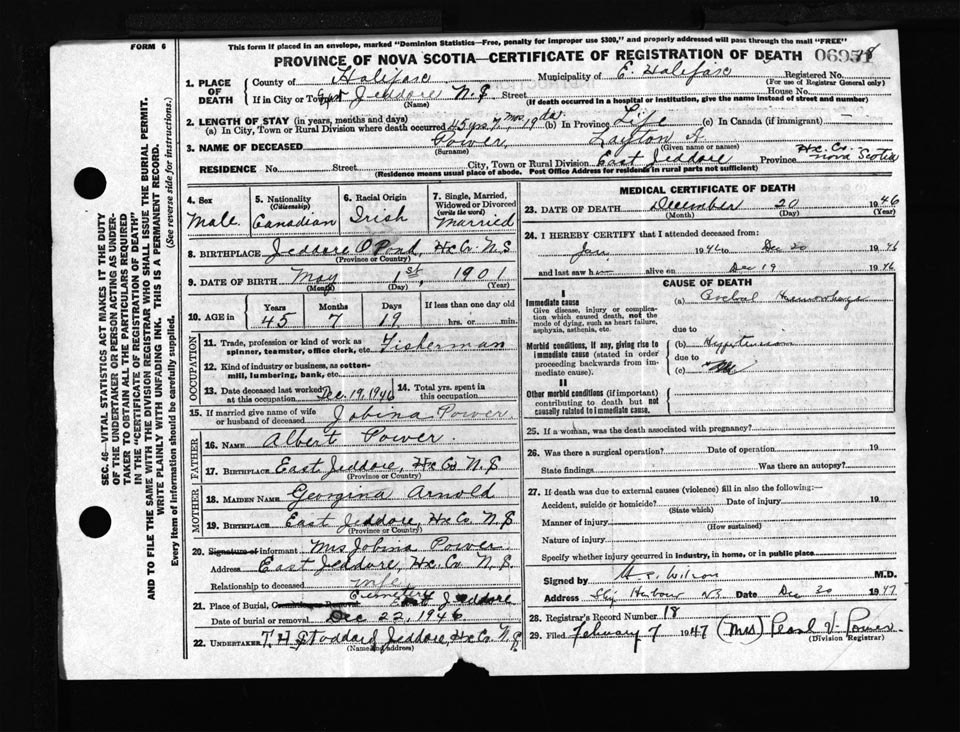 FORM 6
This form if placed in an envelope, marked "Dominion Statistics—Free, penalty for improper use $300," and properly addressed will pass through the mail "FREE"
PROVINCE OF NOVA SCOTIA—CERTIFICATE OF REGISTRATION OF DEATH
1. PLACE OF DEATH
County of Halifax Municipality of E. Halifax Registered No.
(For use of Registrar General only)
If in City or Town East Jeddore N.S Street House No.
(Name) (If death occurred in a hospital or institution, give the name instead of street and number)
2. LENGTH OF STAY (in years, months and days)
(a) In City, Town or Rural Division where death occurred 45 yrs 7 mos 19 ds. (b) In Province Life (c) In Canada (if immigrant) —
3. NAME OF DECEASED Power, Layton A.
(Surname) (Given name or names)
RESIDENCE No. Street City, Town or Rural Division East Jeddore Province Hx. Co. Nova Scotia
(Residence means usual place of abode. Post Office Address for residents in rural parts not sufficient)
4. Sex Male
5. Nationality (Citizenship) Canadian
6. Racial Origin Irish
7. Single, Married, Widowed or Divorced (write the word) Married
8. BIRTHPLACE Jeddore O Pond, Hx Co. N.S
(Province or Country)
9. DATE OF BIRTH May 1st, 1901
(Month) (Day) (Year)
10. AGE in Years 45 Months 7 Days 19 If less than one day old
hrs. or min.
OCCUPATION
11. Trade, profession or kind of work as spinner, teamster, office clerk, etc. Fisherman
12. Kind of industry or business, as cotton-mill, lumbering, bank, etc.
13. Date deceased last worked at this occupation Dec. 19, 1946
14. Total yrs. spent in this occupation
15. If married give name of wife or husband of deceased Jobina Power
FATHER
16. NAME Albert Power.
17. BIRTHPLACE East Jeddore, Hx Co N.S
(Province or Country)
MOTHER
18. MAIDEN NAME Georgina Arnold
19. BIRTHPLACE East Jeddore, Hx Co. N.S
(Province or Country)
20. Signature of informant Mrs Jobina Power.
Address East Jeddore, Hx. Co. N.S.
Relationship to deceased wife
21. Place of Burial, Cemetery East Jeddore
Date of burial or removal Dec 22, 1946
22. UNDERTAKER T. H. Stoddard, Jeddore, Hx Co. N.S
(Name and address)
MEDICAL CERTIFICATE OF DEATH
23. DATE OF DEATH December 20 1946
(Month) (Day) (Year)
24. I HEREBY CERTIFY that I attended deceased from:
Jan 1946 to Dec 20 1946
and last saw h alive on Dec 19 1946
CAUSE OF DEATH
I
Immediate cause
Give disease, injury or complication which caused death, not the mode of dying, such as heart failure, asphyxia, asthenia, etc.
(a) Cerebral Haemorrhage
due to
Morbid conditions, if any, giving rise to immediate cause (stated in order proceeding backwards from immediate cause).
(b) Hypertension
due to
(c)
II
Other morbid conditions (if important) contributing to death but not causally related to immediate cause
25. If a woman, was the death associated with pregnancy?
26. Was there a surgical operation? Date of operation 19
State findings Was there an autopsy?
27. If death was due to external causes (violence) fill in also the following:
Accident, suicide or homicide? Date of injury 19
(State which)
Manner of injury
(How sustained)
Nature of injury
Specify whether injury occurred in industry, in home, or in public place
Signed by Wilson M.D.
Address Ship Harbour NS Date Dec 20 1947
28. Registrar's Record Number 18
29. Filed February 7 1947 (Mrs) Pearl V. Power.
(Division Registrar)
SEC. 46—VITAL STATISTICS ACT MAKES IT THE DUTY
OF THE UNDERTAKER OR PERSON ACTING AS UNDER-
TAKER TO OBTAIN ALL THE PARTICULARS REQUIRED
IN THE "CERTIFICATE OF REGISTRATION OF DEATH"
AND TO FILE THE SAME WITH THE DIVISION REGISTRAR WHO SHALL ISSUE THE BURIAL PERMIT.
WRITE PLAINLY WITH UNFADING INK. THIS IS A PERMANENT RECORD.
Every item of information should be carefully supplied. (See reverse side for instructions.)